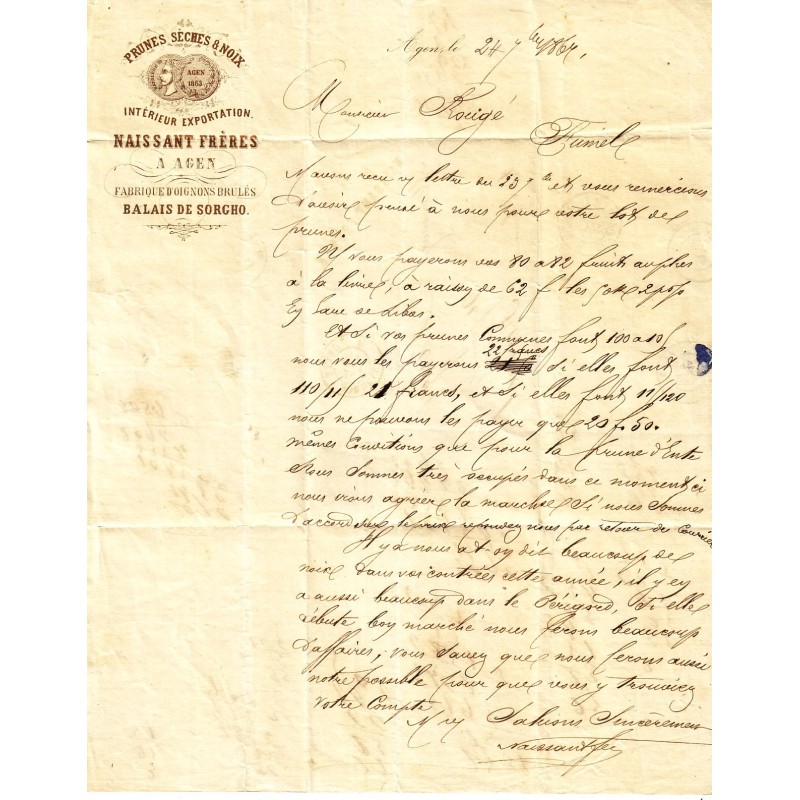 PRUNES SÈCHES & NOIX
AGEN
1863
INTÉRIEUR EXPORTATION.
NAISSANT FRÈRES
A AGEN
FABRIQUE D'OIGNONS BRULÉS
BALAIS DE SORGHO.
Agen, le 24 7bre 186
Monsieur Rougé
Fumel
Navons recu vj lettre du 23 et vous remercions
D'avoir pensé à nous pour votre lot de
prunes.
Ny vous payerons vos 80 a 82 fruits
à la livre, à raison de 62 f les 50 K
En Gare de Libos.
Et Si vos prunes Communes font 100 a 105
nous vous les payerons 22 francs Si elles font
110/115 21 francs, et Si elles font 11/120
nous ne pouvons les payer que 20 f. 50.
mêmes Conditions que pour la prune d'Ente
Nous Sommes très occupés dans ce moment ci
nous irons agréer la marchse Si nous Sommes
D'accord sur le prix repondez nous par retour du Courrier
Il y a nous a t-on dit beaucoup de
noix dans vos contrées cette année, il y en
a aussi beaucoup dans le Périgord, Si elle
débute bon marché nous ferons beaucoup
D'affaires, vous Savez que nous ferons aussi
notre possible pour que vous y trouviez
votre Compte
N vj Saluons Sincèrement
Naissant fres